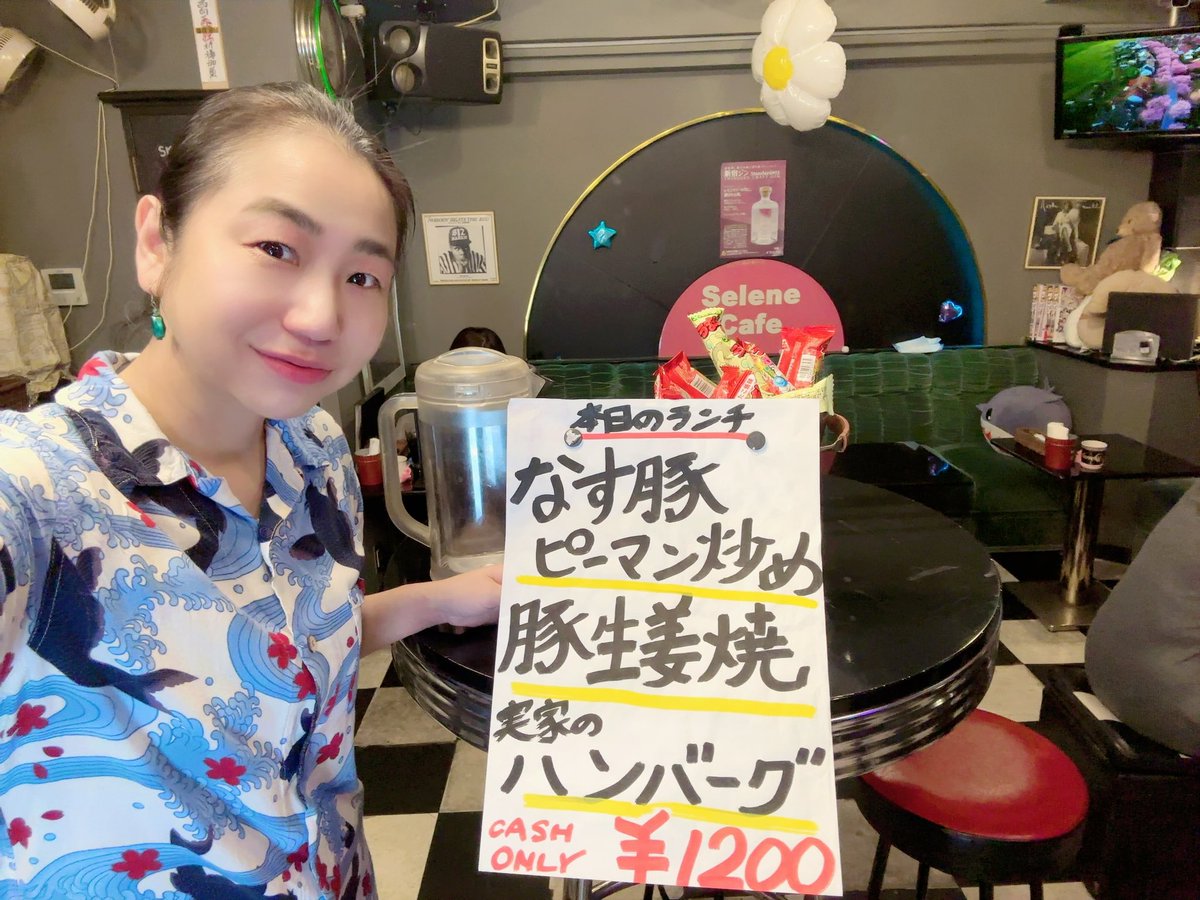 本日のランチ
なす豚
ピーマン炒め
豚生姜焼
実家の
ハンバーグ
CASH
ONLY
¥1200
Selene
Cafe
新宿ジン